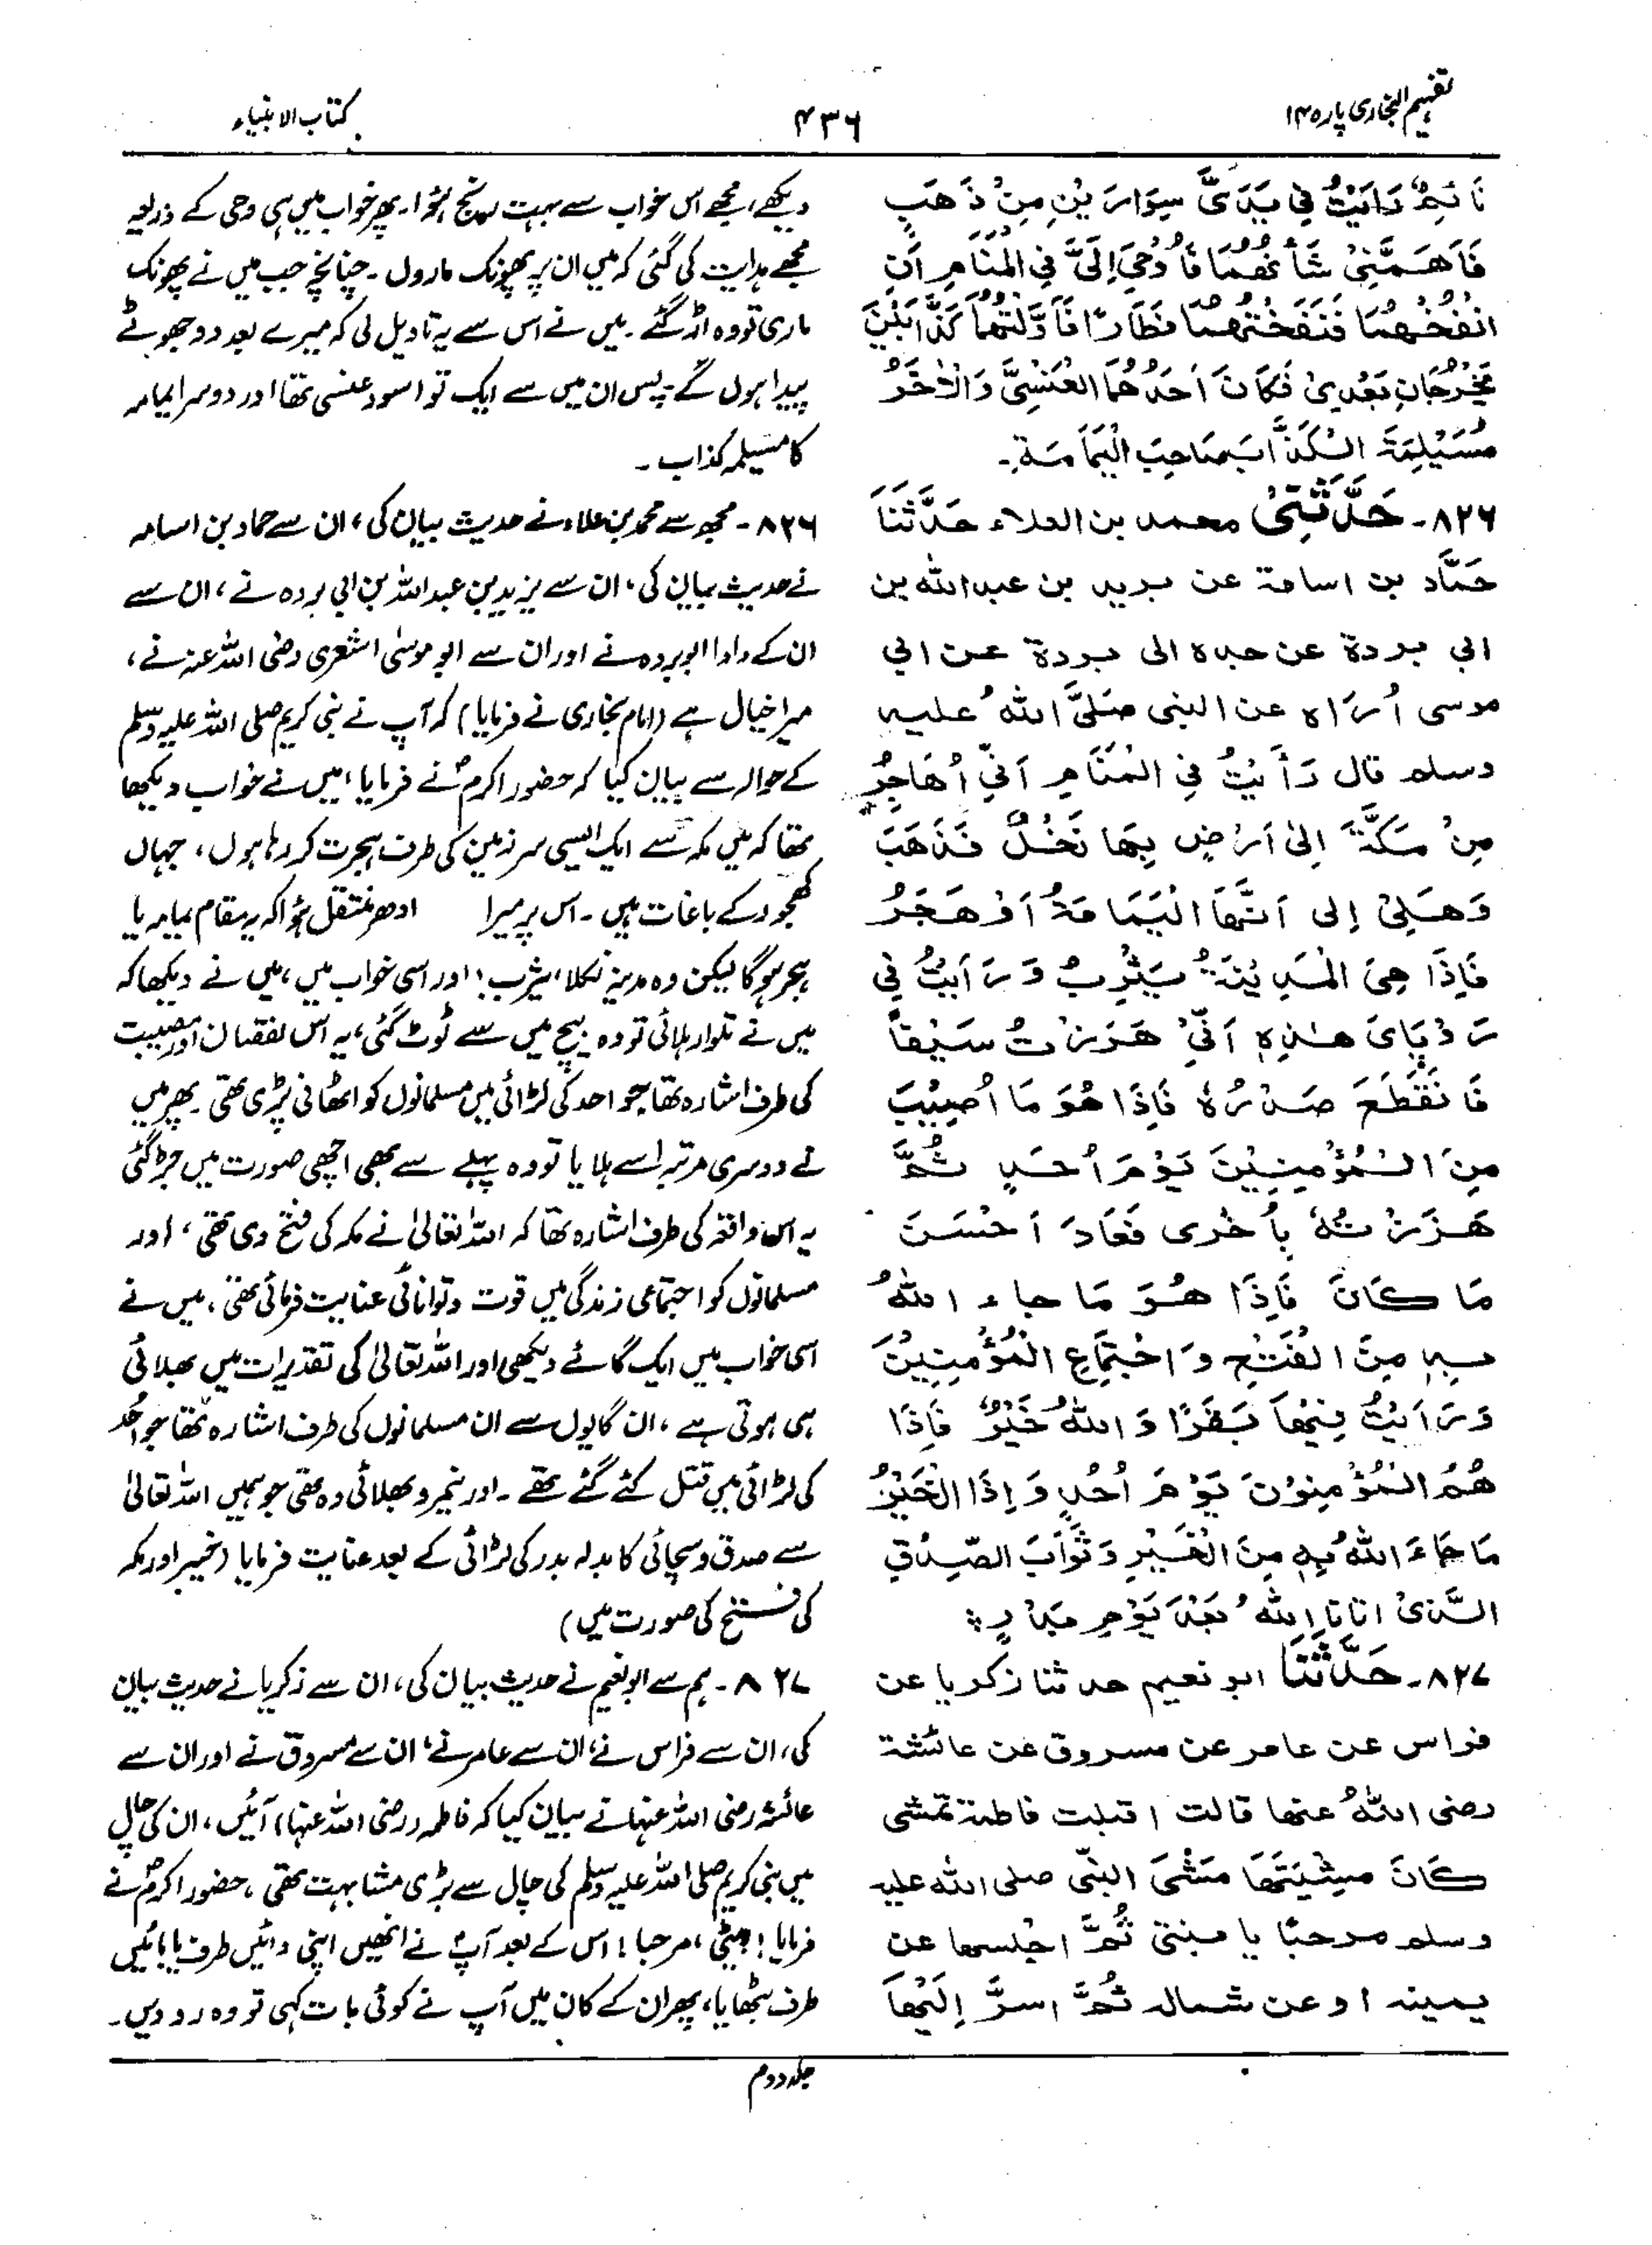 تفہیم البخاری پارہ ۱۴
۴۳۶
کتاب الانبیاء
نَائِمٌ رَأَيْتُ فِي يَدَيَّ سِوَارَيْنِ مِنْ ذَهَبٍ
فَأَهَمَّنِيْ شَأْنُهُمَا فَأُوْحِيَ إِلَيَّ فِي الْمَنَامِ أَنِ
انْفُخْهُمَا فَنَفَخْتُهُمَا فَطَارَا فَأَوَّلْتُهُمَا كَذَّابَيْنِ
يَخْرُجَانِ بَعْدِيْ فَكَانَ أَحَدُهُمَا الْعَنْسِيَّ وَالْآخَرُ
مُسَيْلِمَةَ الْكَذَّابَ صَاحِبَ الْيَمَامَةِ۔
۸۲۶۔ حَدَّثَنِيْ محمد بن العلاء حَدَّثَنَا
حَمَّاد بن اسامة عن بريد بن عبد الله بن
ابي بردة عن جده ابى بردة عن ابي
موسى أُرَاه عن النبى صَلَّى اللهُ عليه
وسلم قال رَأَيْتُ فِي الْمَنَامِ اَنِّيْ أُهَاجِرُ
مِنْ مَكَّةَ اِلىٰ اَرْضٍ بِهَا نَخْلٌ فَذَهَبَ
وَهَلِيْ إِلى اَنَّهَا الْيَمَامَةُ اَوْ هَجَرُ
فَاِذَا هِيَ الْمَدِيْنَةُ يَثْرِبُ وَرَأَيْتُ فِي
رُؤْيَايَ هٰذِهِ اَنِّيْ هَزَزْتُ سَيْفًا
فَانْقَطَعَ صَدْرُهُ فَاِذَا هُوَ مَا اُصِيْبَ
مِنَ الْمُؤْمِنِيْنَ يَوْمَ اُحُدٍ ثُمَّ
هَزَزْتُهُ بِأُخْرى فَعَادَ اَحْسَنَ
مَا كَانَ فَاِذَا هُوَ مَا جاء اللهُ
بِهِ مِنَ الْفَتْحِ وَاجْتِمَاعِ الْمُؤْمِنِيْنَ
وَرَاَيْتُ فِيْهَا بَقَرًا وَاللهُ خَيْرٌ فَاِذَا
هُمُ الْمُؤْمِنُوْنَ يَوْمَ اُحُدٍ وَاِذَا الْخَيْرُ
مَا جَاءَ اللهُ بِهِ مِنَ الْخَيْرِ وَثَوَابَ الصِّدْقِ
الَّذِىْ اتانا اللهُ بَعْدَ يَوْمِ بَدْرٍ ؞
۸۲۷۔ حَدَّثَنَا ابو نعيم حدثنا زكريا عن
فراس عن عامر عن مسروق عن عائشة
رضى اللهُ عنها قالت اقبلت فاطمة تمشى
كَانَ مِشْيَتَهَا مَشْىَ النبّى صلى الله عليه
وسلم مرحبًا يا بنتى ثُمَّ اجلسها عن
يمينه او عن شماله ثُمَّ اسرَّ إِلَيْهَا
دیکھے، مجھے اس خواب سے بہت رنج ہوا۔ پھر خواب میں ہی وحی کے ذریعہ
مجھے ہدایت کی گئی کہ میں ان پر پھونک ماروں۔ چنانچہ جب میں نے پھونک
ماری تو وہ اڑ گئے۔ میں نے اس سے یہ تاویل لی کہ میرے بعد دو جھوٹے
پیدا ہوں گے، پس ان میں سے ایک تو اسود عنسی تھا اور دوسرا یمامہ
کا مسیلمہ کذاب۔
۸۲۶۔ مجھ سے محمد بن علاء نے حدیث بیان کی، ان سے حماد بن اسامہ
نے حدیث بیان کی، ان سے یزید بن عبداللہ بن ابی بردہ نے، ان سے
ان کے دادا ابوبردہ نے اور ان سے ابو موسیٰ اشعری رضی اللہ عنہ نے،
میرا خیال ہے (امام بخاری نے فرمایا) کہ آپ نے نبی کریم صلی اللہ علیہ وسلم
کے حوالہ سے بیان کیا کہ حضور اکرمؐ نے فرمایا، میں نے خواب دیکھا
تھا کہ میں مکہ سے ایک ایسی سرزمین کی طرف ہجرت کر رہا ہوں، جہاں
کھجور کے باغات ہیں۔ اس پر میرا ادھر منتقل ہؤا کہ یہ مقام یمامہ یا
ہجر ہوگا لیکن وہ مدینہ نکلا، یثرب! اور اسی خواب میں، میں نے دیکھا کہ
میں نے تلوار ہلائی تو وہ بیچ میں سے ٹوٹ گئی، یہ اس نقصان اور مصیبت
کی طرف اشارہ تھا جو احد کی لڑائی میں مسلمانوں کو اٹھانی پڑی تھی۔ پھر میں
نے دوسری مرتبہ اسے ہلایا تو وہ پہلے سے بھی اچھی صورت میں جڑ گئی
یہ اس واقعہ کی طرف اشارہ تھا کہ اللہ تعالیٰ نے مکہ کی فتح دی تھی، اور
مسلمانوں کو اجتماعی زندگی میں قوت و توانائی عنایت فرمائی تھی، میں نے
اسی خواب میں ایک گائے دیکھی اور اللہ تعالیٰ کی تقدیرات میں بھلائی
ہی ہوتی ہے، ان گایوں سے ان مسلمانوں کی طرف اشارہ تھا جو اُحد
کی لڑائی میں قتل کئے گئے تھے۔ اور خیر و بھلائی وہ تھی جو ہمیں اللہ تعالیٰ
سے صدق و سچائی کا بدلہ بدر کی لڑائی کے بعد عنایت فرمایا (خیبر اور مکہ
کی فتح کی صورت میں)
۸۲۷۔ ہم سے ابونعیم نے حدیث بیان کی، ان سے زکریا نے حدیث بیان
کی، ان سے فراس نے، ان سے عامر نے، ان سے مسروق نے اور ان سے
عائشہ رضی اللہ عنہا نے بیان کیا کہ فاطمہ (رضی اللہ عنہا) آئیں، ان کی چال
میں نبی کریم صلی اللہ علیہ وسلم کی چال سے بڑی مشابہت تھی، حضور اکرمؐ نے
فرمایا! بیٹی، مرحبا! اس کے بعد آپؐ نے انھیں اپنی دائیں طرف یا بائیں
طرف بٹھایا، پھر ان کے کان میں آپ نے کوئی بات کہی تو وہ رو دیں۔
جلد دوم